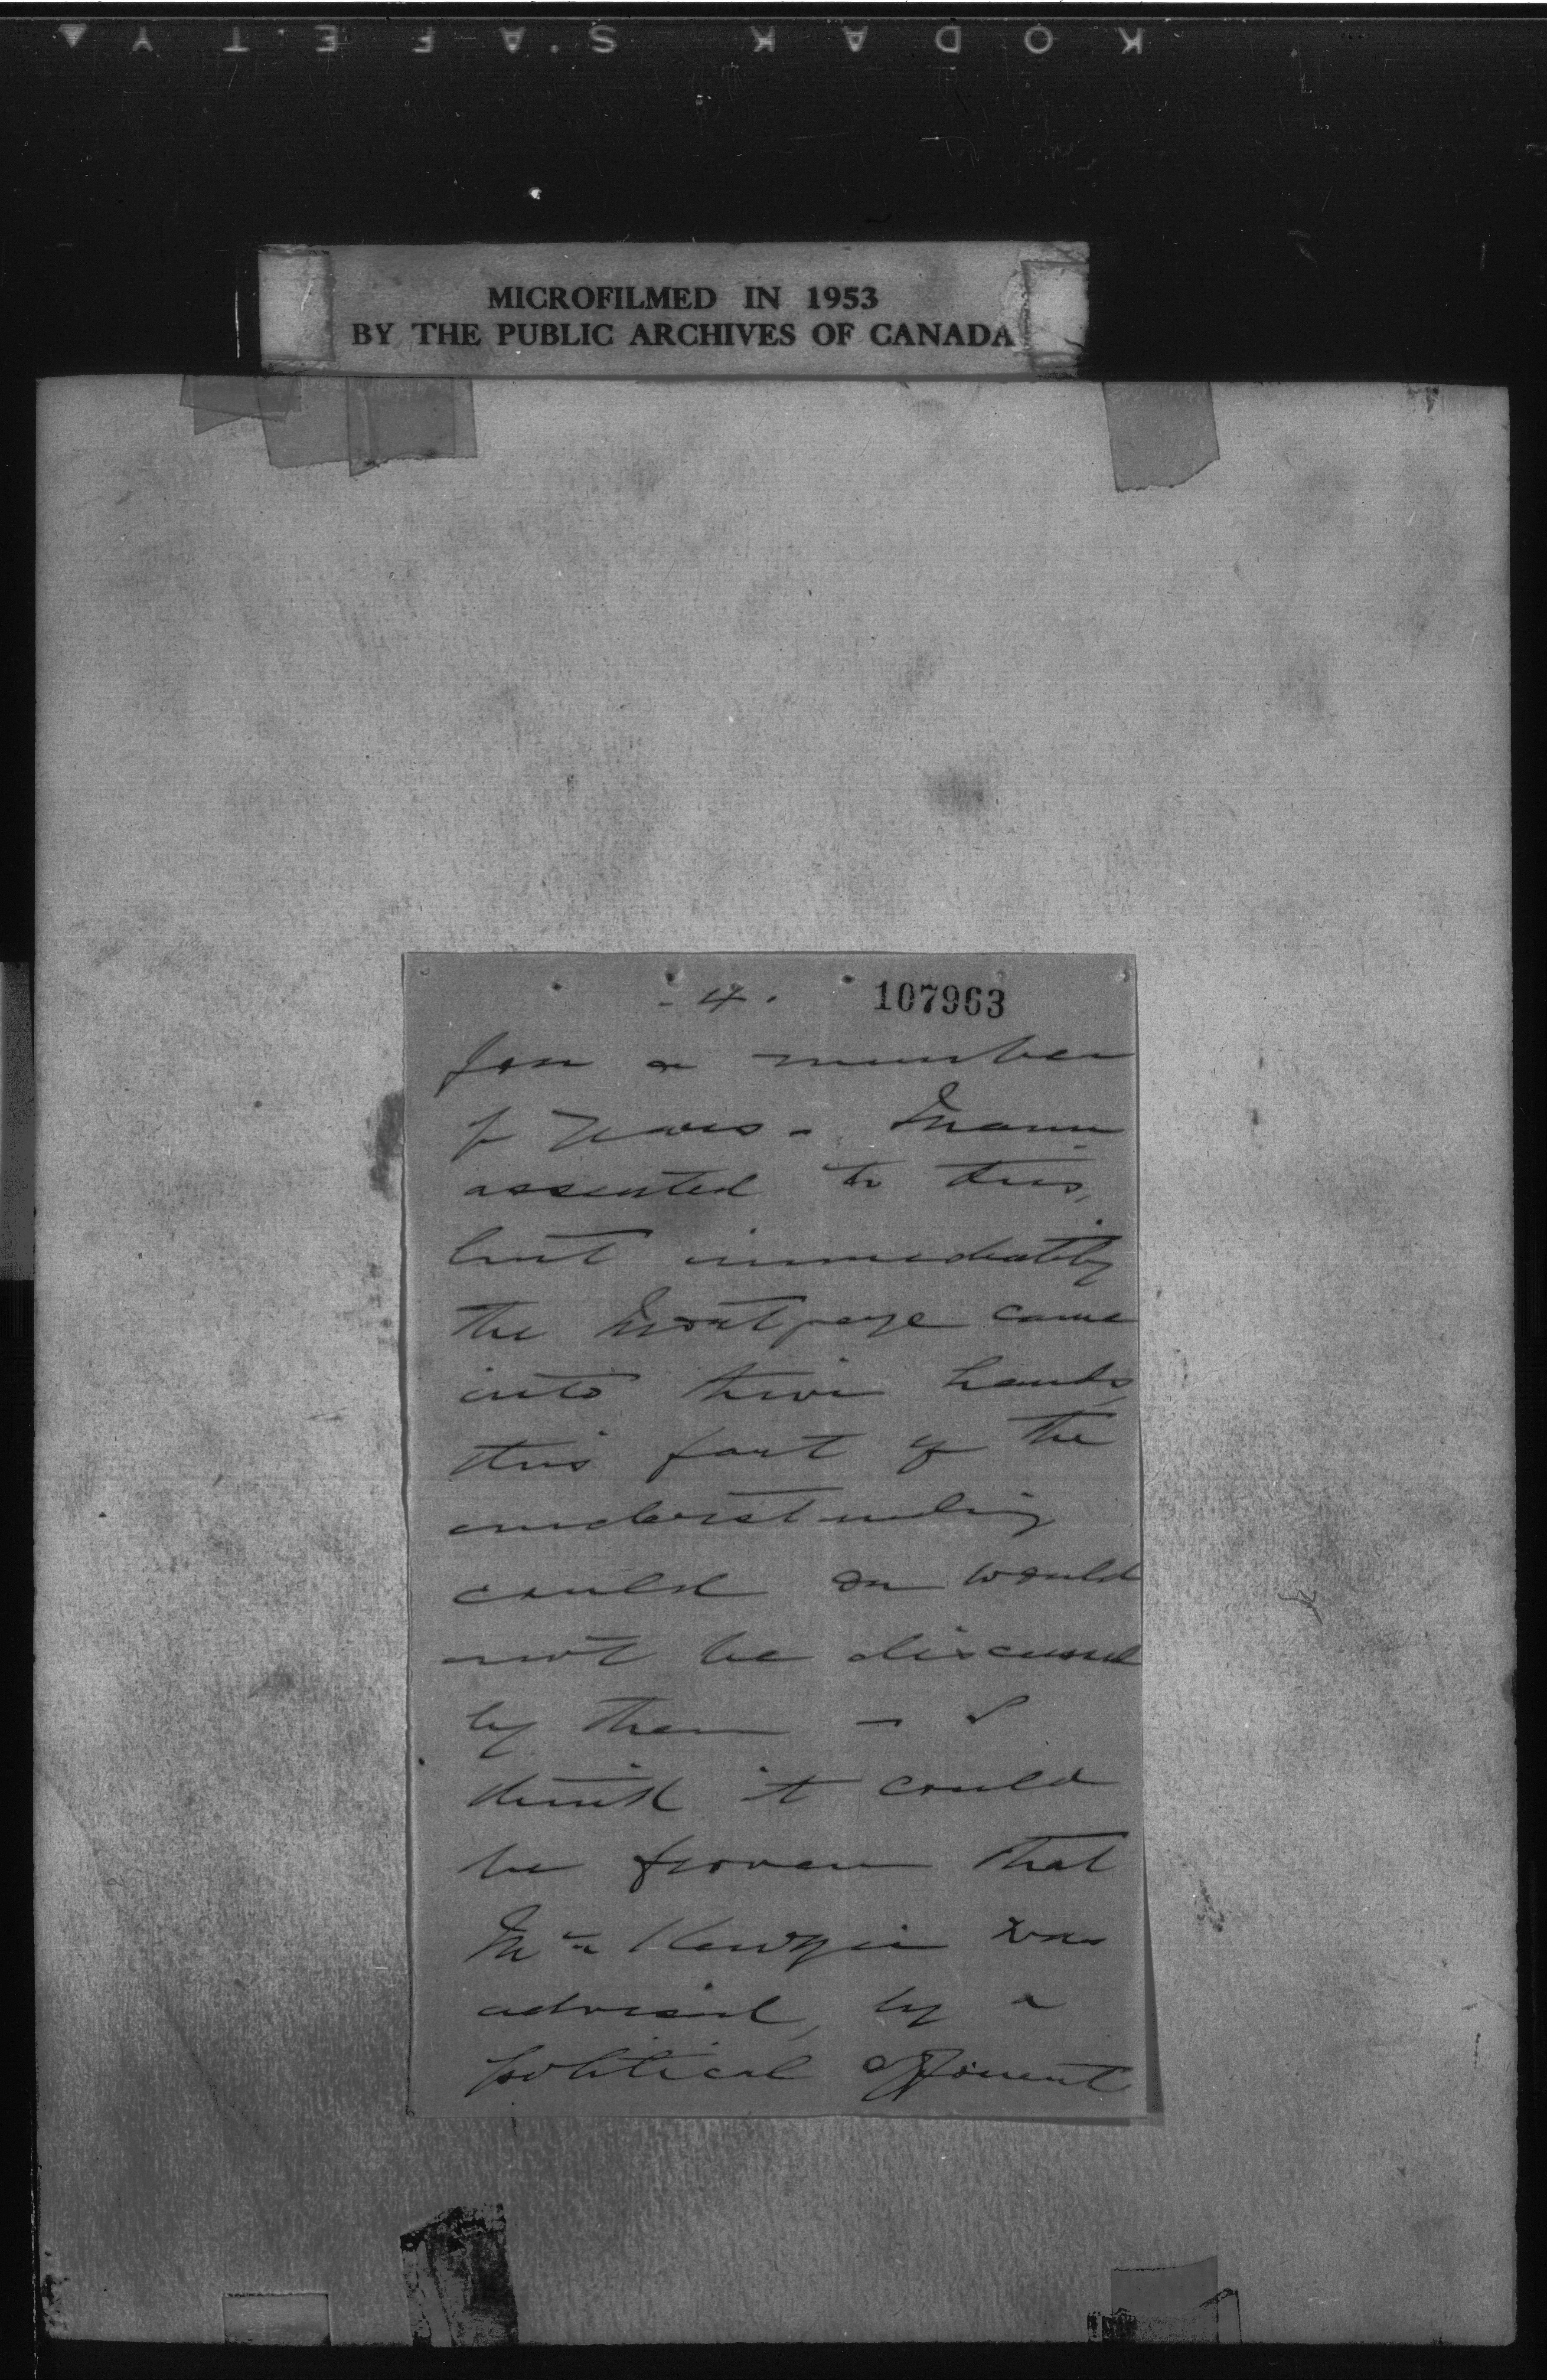 KODAK SAFETY
MICROFILMED IN 1953
BY THE PUBLIC ARCHIVES OF CANADA
- 4 .
107963
for a number
of years - Mann
assented to this,
but immediately
the Mortgage came
into their hands,
this part of the
understanding
could or would
not be discussed
by them - I
think it could
be proven that
McKenzie was
advised, by a
political opponent